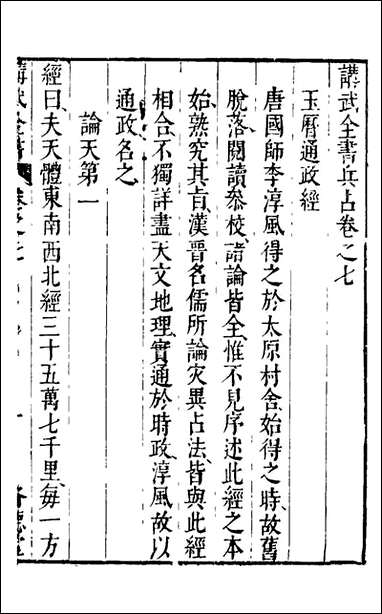 講武全書兵占卷之七
玉曆通政經
唐國師李淳風得之於太原村舍始得之時故舊
脫落閱讀叅校諸論皆全惟不見序述此經之本
始熟究其旨漢晉名儒所論灾異占法皆與此經
相合不獨詳盡天文地理實通於時政淳風故以
通政名之
論天第一
經曰夫天體東南西北經三十五萬七千里每一方
講武全書
卷之七